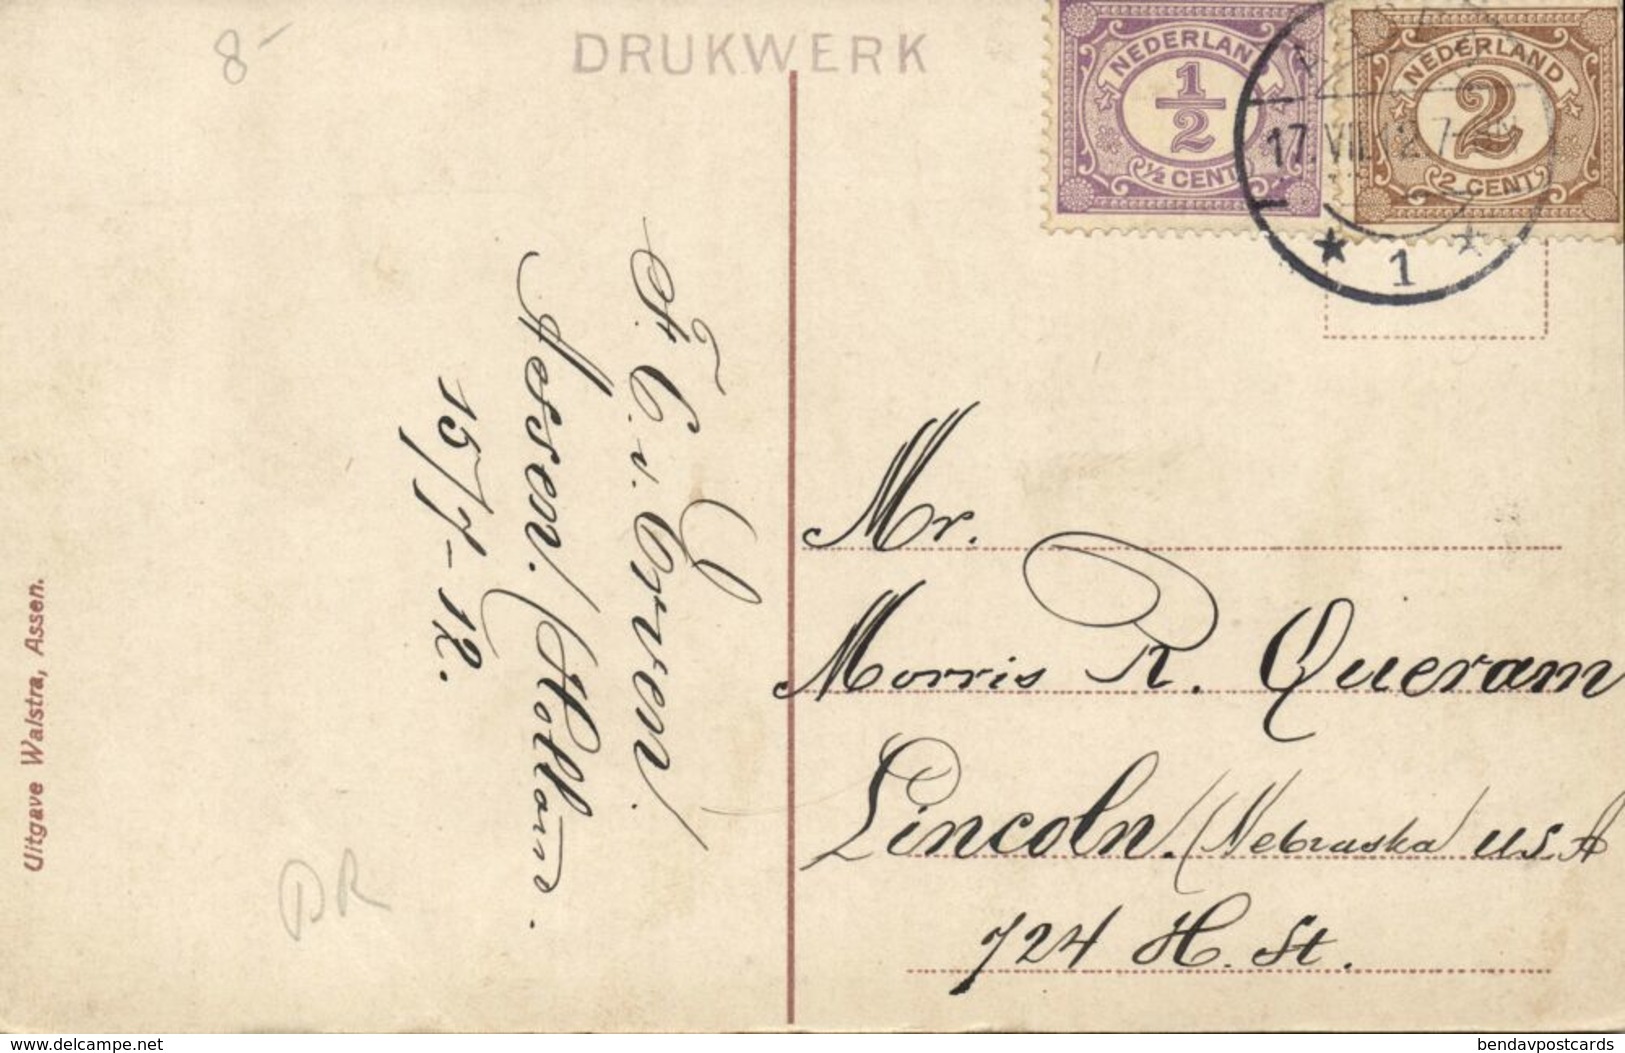 8-
DRUKWERK
NEDERLAND
1/2
1/2 CENT
NEDERLAND
2
2 CENT
17.VII.12.7-
1
Assen. (Holland.
15/7-12.
Mr.
Morris R. Queram
Lincoln. (Nebraska U.S.A
724 H. St.
Uitgave Walstra, Assen.
DR
delcampe.net
bendavpostcards